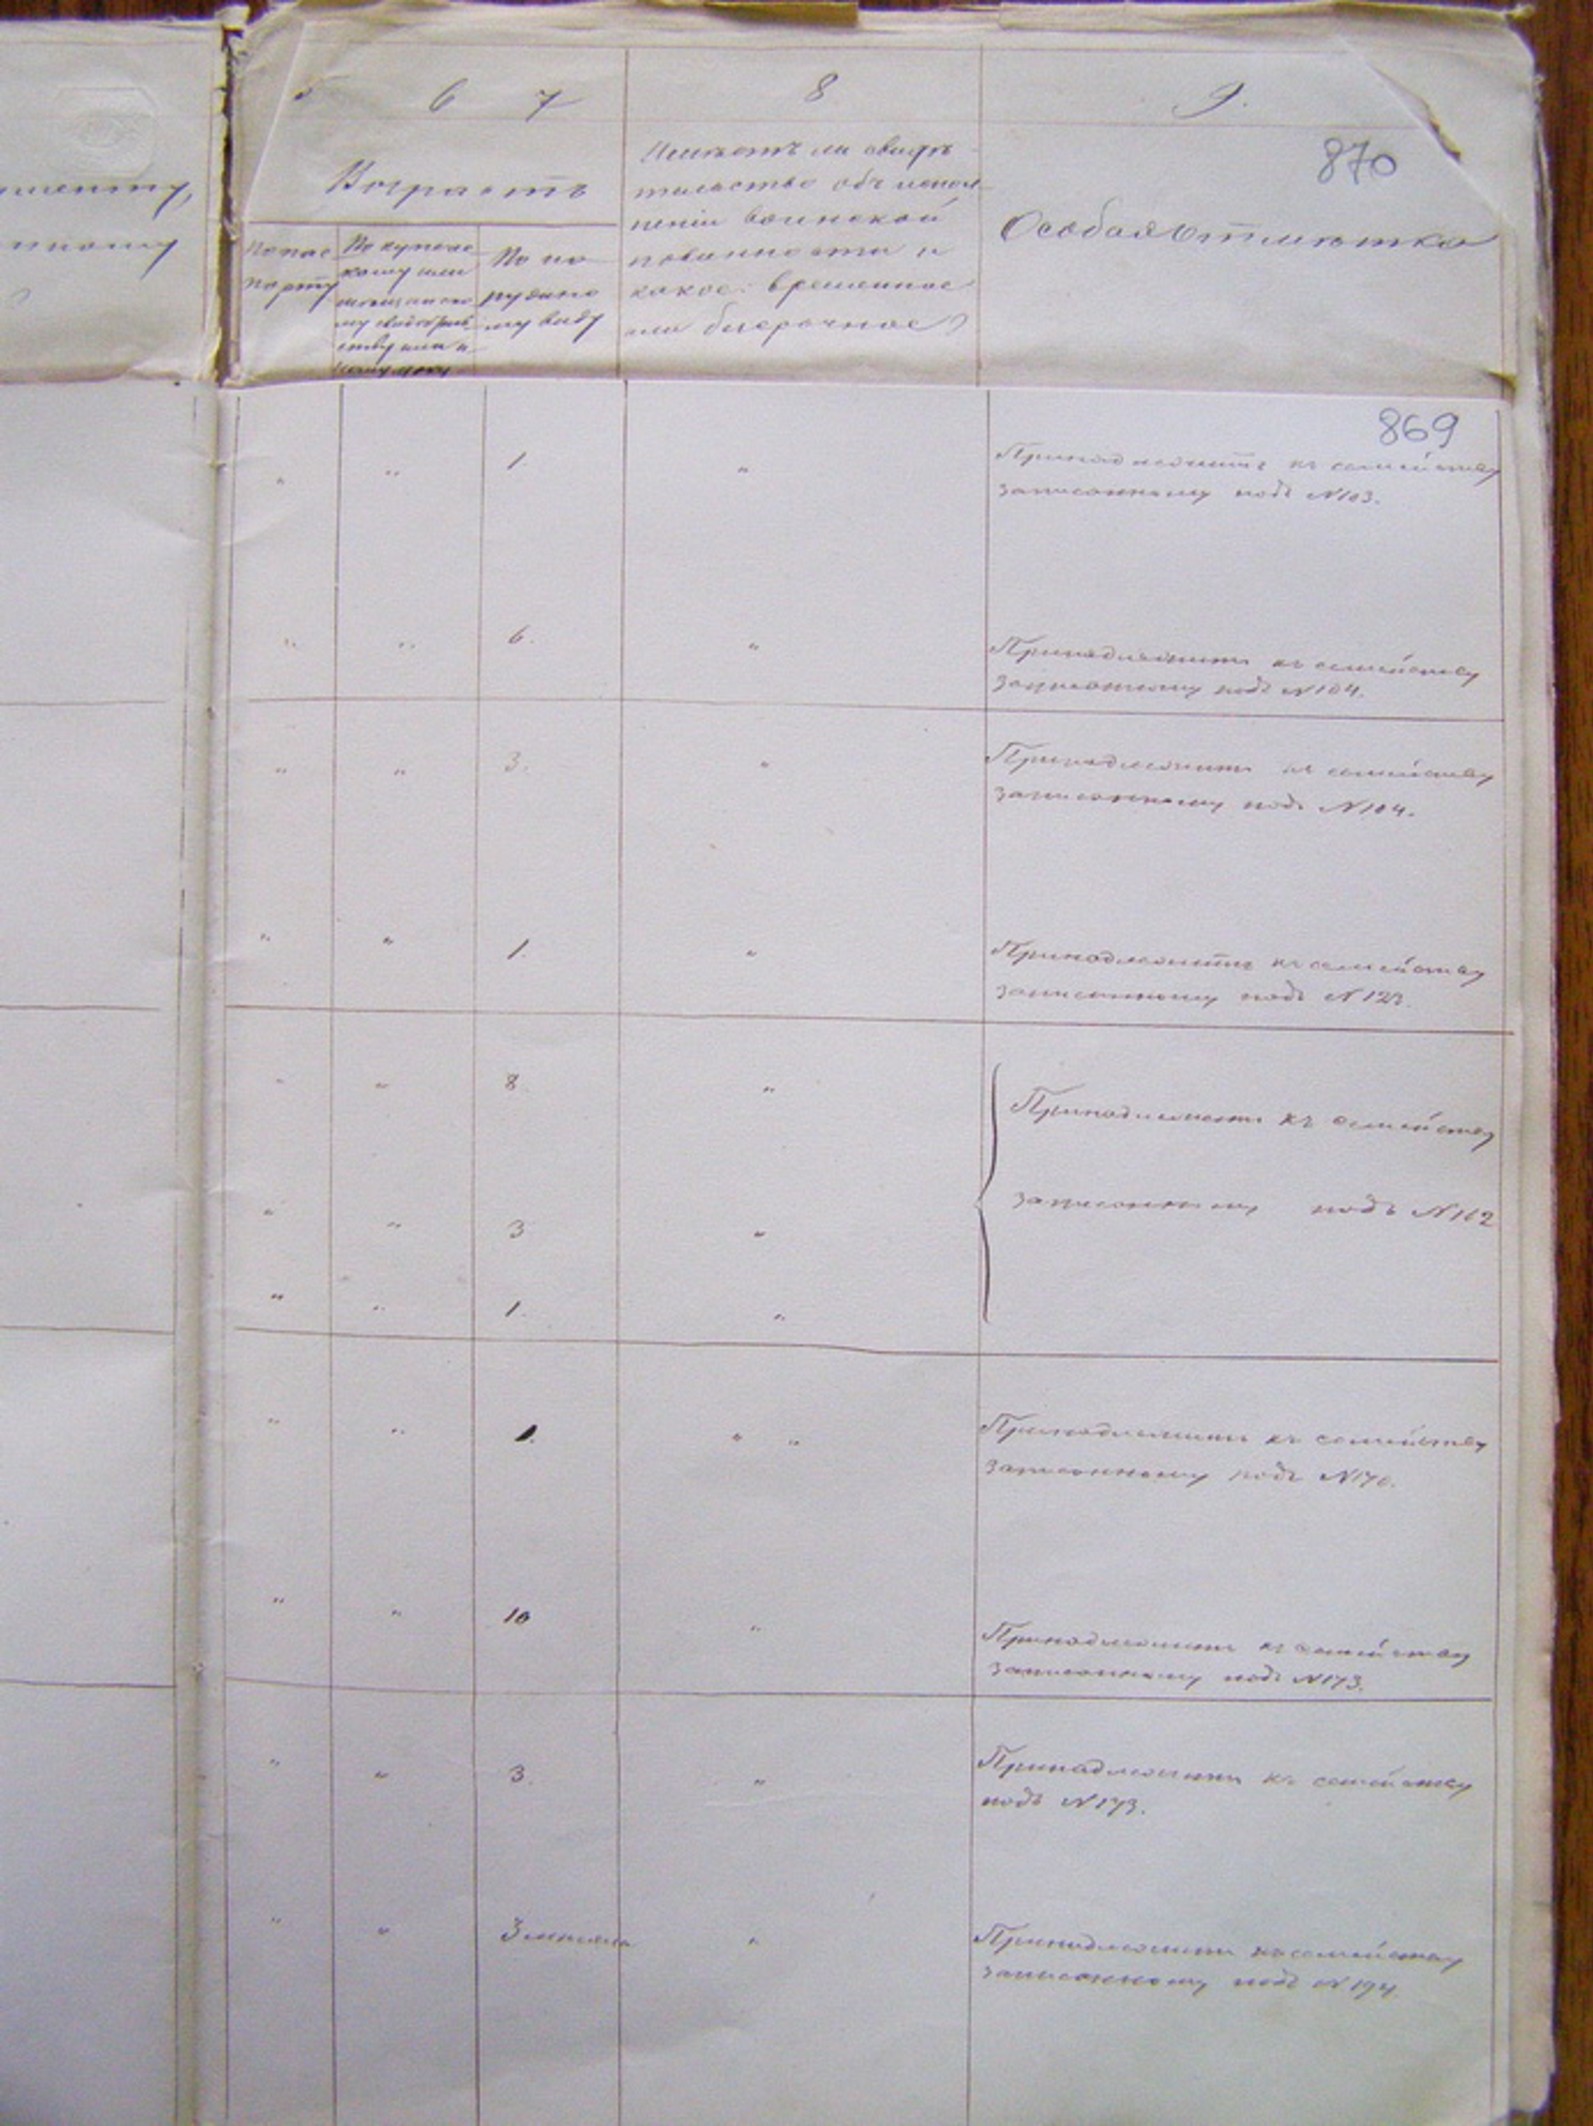 6 7 8 9.
870
Возрастъ
По пас
порту
По купечес
кому или
мѣщанско
му свидѣтель
ству или и
По на
ружно
му виду
Имѣетъ ли свидѣ
тельство объ испол
неніи воинской
повинности и
какое: временное
или безсрочное?
Особая отмѣтка
869
" " 1. " Принадлежитъ къ семейству
записанному подъ N103.
" " 6. " Принадлежитъ къ семейству
записанному подъ N104.
" " 3. " Принадлежитъ къ семейству
записанному подъ N104.
" " 1. " Принадлежитъ къ семейству
записанному подъ N123.
" " 8. " Принадлежатъ къ семейству
" " 3 " записанному подъ N162
" " 1. "
" " 1. " " Принадлежитъ къ семейству
записанному подъ N170.
" " 10 " Принадлежитъ къ семейству
записанному подъ N173.
" " 3. " Принадлежитъ къ семейству
подъ N173.
" " 3 мѣсяца " Принадлежитъ къ семейству
записанному подъ N194